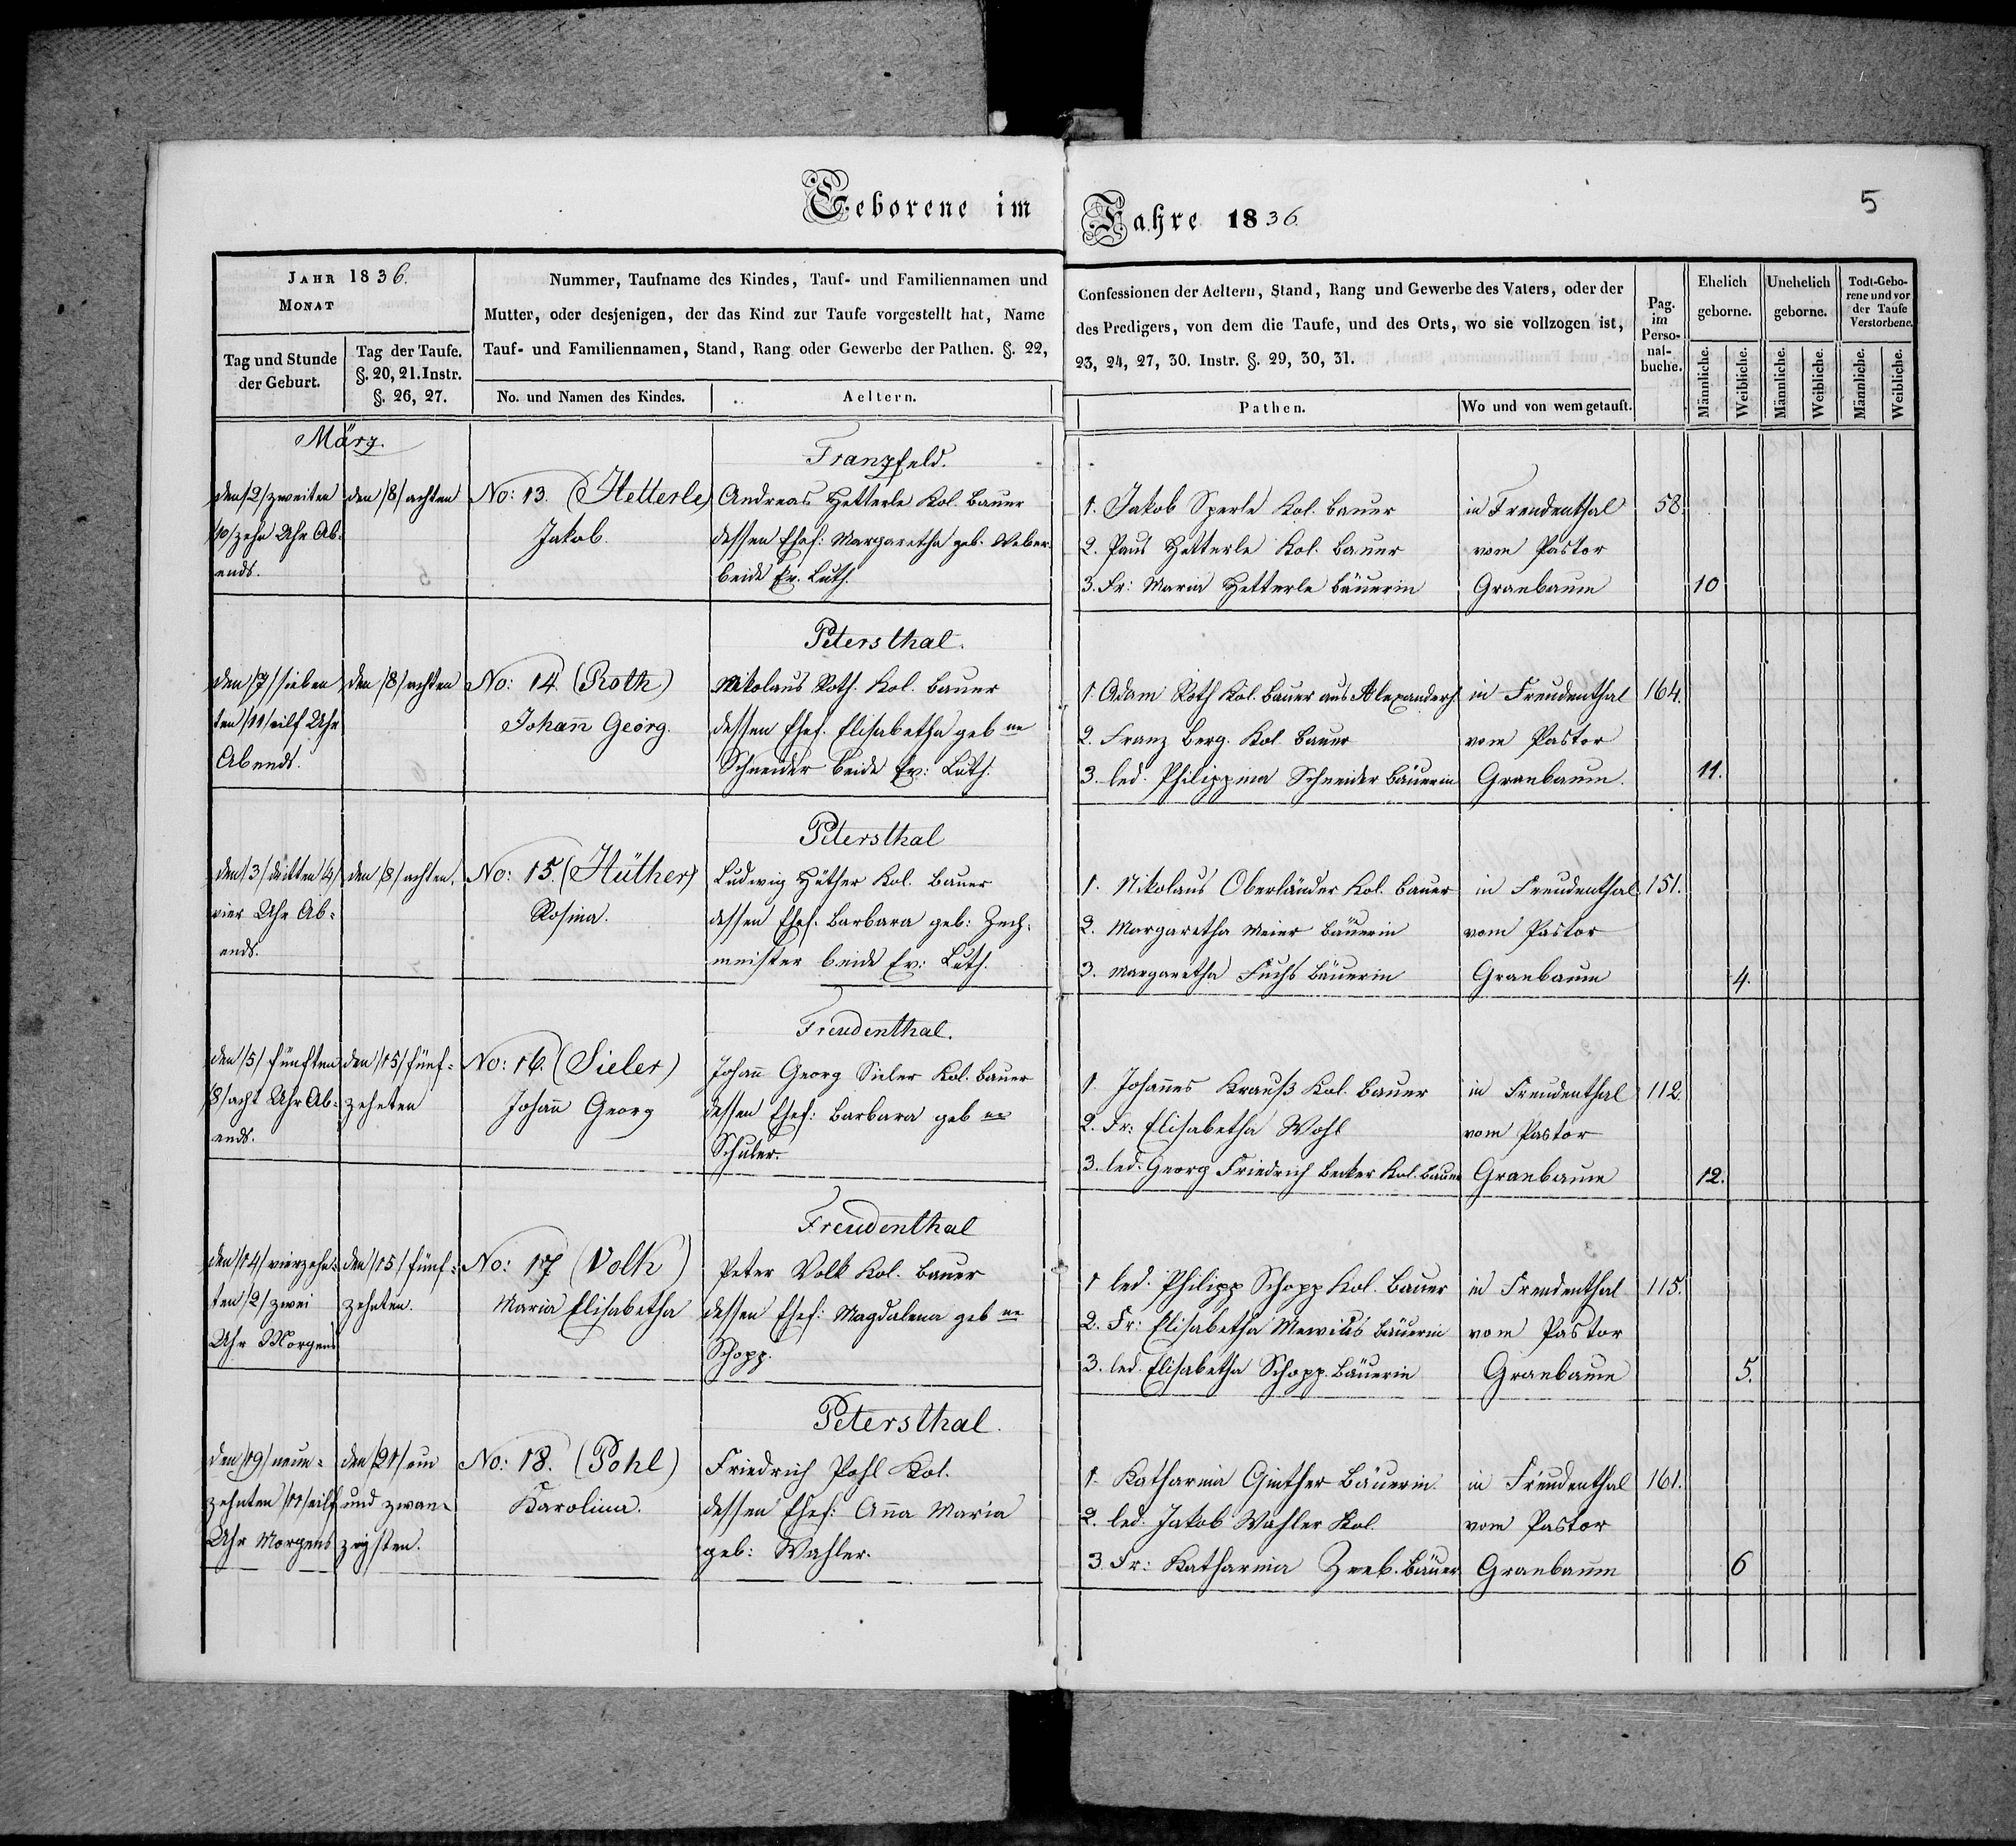 Geborene im
Jahre 1836.
5
JAHR 1836.
MONAT
Tag und Stunde
der Geburt.
Tag der Taufe.
§. 20, 21. Instr.
§. 26, 27.
Nummer, Taufname des Kindes, Tauf- und Familiennamen und
Mutter, oder desjenigen, der das Kind zur Taufe vorgestellt hat, Name
Tauf- und Familiennamen, Stand, Rang oder Gewerbe der Pathen. §. 22,
No. und Namen des Kindes.
Aeltern.
Confessionen der Aeltern, Stand, Rang und Gewerbe des Vaters, oder der
des Predigers, von dem die Taufe, und des Orts, wo sie vollzogen ist,
23, 24, 27, 30. Instr. §. 29, 30, 31.
Pathen.
Wo und von wem getauft.
Pag.
im
Perso-
nal-
buche.
Ehelich
geborne.
Männliche.
Weibliche.
Unehelich
geborne.
Männliche.
Weibliche.
Todt-Gebo-
rene und vor
der Taufe
Verstorbene.
Männliche.
Weibliche.
März.
Franzfeld.
den /2/ zweiten
/10/ zehn Uhr Ab-
ends.
den /8/ achten
No: 13. (Hetterle)
Jakob.
Andreas Hetterle Kol. Bauer
dessen Ehef: Margaretha geb. Weber
beide Ev. Luth.
1. Jakob Sperle Kol. Bauer
2. Paul Hetterle Kol. Bauer
3. Fr: Maria Hetterle Bäuerin
in Freudenthal
vom Pastor
Granbaum
58.
10
Petersthal.
den /7/ sieben
ten /11/ eilf Uhr
Abends.
den /8/ achten
No: 14 (Roth)
Johann Georg.
Nikolaus Roth. Kol. Bauer
dessen Ehef. Elisabetha geb ne
Schneider beide Ev: Luth.
1. Adam Roth Kol. Bauer aus Alexanderh.
2. Franz Berg. Kol. Bauer
3. led. Philippina Schneider Bäuerin
in Freudenthal
vom Pastor
Granbaum.
164.
11.
Petersthal
den /3/ dritten /4/
vier Uhr Ab-
ends.
den /8/ achten.
No: 15. (Hüther)
Rosina.
Ludwig Hüther Kol. Bauer
dessen Ehef. Barbara geb: Zech-
meister beide Ev: Luth.
1. Nikolaus Oberländer Kol. Bauer
2. Margaretha Meier Bäuerin
3. Margaretha Fuchs Bäuerin
in Freudenthal
vom Pastor
Granbaum
151.
4.
Freudenthal.
den /5/ fünften
/8/ acht Uhr Ab-
ends.
den /15/ fünf-
zehnten
No: 16. (Sieler)
Johann Georg
Johann Georg Sieler Kol. Bauer
dessen Ehef: Barbara geb ne
Schuler.
1. Johannes Krauß Kol. Bauer
2. Fr: Elisabetha Wohl
3. led. Georg Friedrich Becker Kol. Bauer
in Freudenthal
vom Pastor
Granbaum
112.
12.
Freudenthal
den /14/ vierzehn-
ten /2/ zwei
Uhr Morgens
den /15/ fünf-
zehnten.
No: 17 (Volk)
Maria Elisabetha
Peter Volk Kol. Bauer
dessen Ehef: Magdalena geb ne
Schopp.
1 led. Philipp Schopp Kol. Bauer
2. Fr: Elisabetha Bäuerin
3. led. Elisabetha Schopp. Bäuerin
in Freudenthal
vom Pastor
Granbaum
115.
5.
Petersthal.
den /19/ neun-
zehnten /11/ eilf
Uhr Morgens
den /21/ ein
und zwan-
zigsten.
No: 18. (Pohl)
Karolina.
Friedrich Pohl Kol.
dessen Ehef: Anna Maria
geb: Wahler.
1. Katharina Ginther Bäuerin.
2. led. Jakob Wahler Kol.
3. Fr: Katharina Bäuer
in Freudenthal
vom Pastor
Granbaum
161.
6